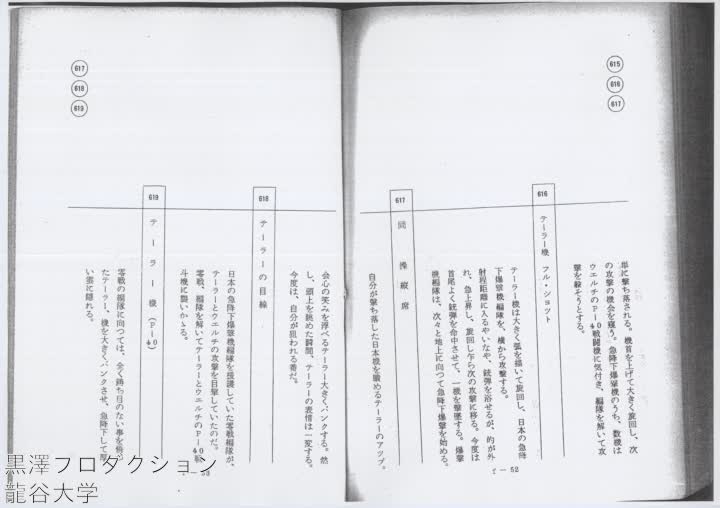 615
616
617
単に撃ち落される。機首を上げて大きく旋回し、次
の攻撃の機会を窺う。急降下爆撃機のうち、数機は
ウエルチのP—40戦闘機に気付き、編隊を解いて攻
撃を躱そうとする。
616 テーラー機 フル・ショット
テーラー機は大きく弧を描いて旋回し、日本の急降
下爆撃機編隊を、横から攻撃する。
射程距離に入るやいなや、銃弾を浴せるが、的が外
れ、急上昇し、旋回し乍ら次の攻撃に移る。今度は
首尾よく銃弾を命中させて、一機を撃墜する。爆撃
機編隊は、次々と地上に向つて急降下爆撃を始める。
617 同 操縦席
自分が撃ち落した日本機を眺めるテーラーのアップ。
r — 52
617
618
619
会心の笑みを浮べるテーラー大きくバンクする。然
し、頭上を眺めた瞬間、テーラーの表情は一変する。
今度は、自分が狙われる番だ。
618 テーラーの目線
日本の急降下爆撃機編隊を援護していた零戦編隊が、
テーラーとウエルチの攻撃を目撃していたのだ。
零戦、編隊を解いてテーラーとウエルチのP—40戦
斗機に襲いかゝる。
619 テーラー機(P—40)
零戦の編隊に向つては、全く勝ち目のない事を悟つ
たテーラー、機を大きくバンクさせ、急降下して厚
い雲に隠れる。
r — 53
黒澤プロダクション
龍谷大学